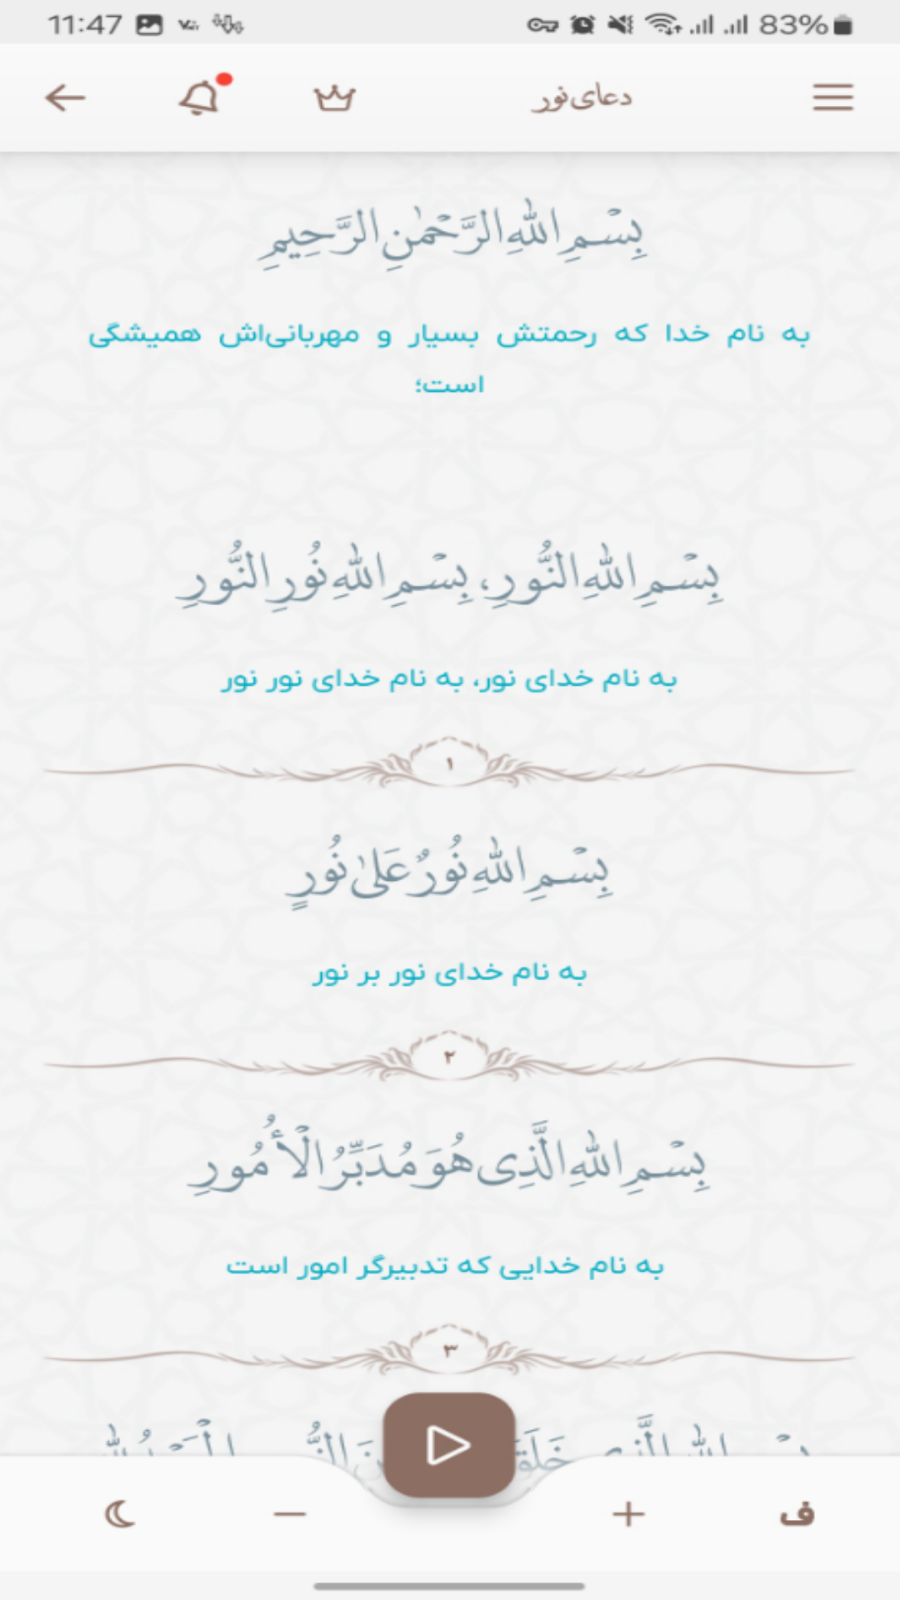 11:47
83%
دعای نور
بِسْمِ اللّٰهِ الرَّحْمٰنِ الرَّحِیمِ
به نام خدا که رحمتش بسیار و مهربانی‌اش همیشگی
است؛
بِسْمِ اللّٰهِ النُّورِ، بِسْمِ اللّٰهِ نُورِ النُّورِ
به نام خدای نور، به نام خدای نور نور
۱
بِسْمِ اللّٰهِ نُورٌ عَلىٰ نُورٍ
به نام خدای نور بر نور
۲
بِسْمِ اللّٰهِ الَّذِی هُوَ مُدَبِّرُ الْأُمُورِ
به نام خدایی که تدبیرگر امور است
۳
ف